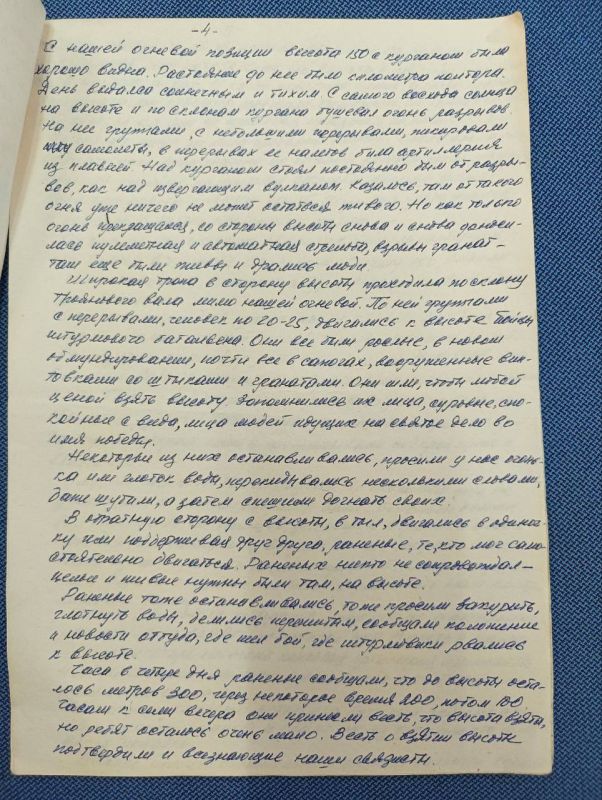 -4-
С нашей огневой позиции высота 150 с курганом была
хорошо видна. Расстояние до нее было километра полтора.
День выдался солнечным и тихим. С самого восхода солнца
на высоте и по склонам кургана бушевал огонь разрывов.
На нее группами, с небольшими перерывами, пикировали
самолеты, в перерывах ее налетов била артиллерия
из плавней. Над курганом стоял постоянно дым от разры-
вов, как над извергающим вулканом. Казалось, там от такого
огня уже ничего не может остаться живого. Но как только
огонь прекращался, со стороны высоты снова и снова доноси-
лась пулеметная и автоматная стрельба, взрывы гранат -
там еще были живы и дрались люди.
Широкая тропа в сторону высоты проходила по склону
Троянового вала мимо нашей огневой. По ней группами
с перерывами, человек по 20-25, двигались к высоте бойцы
штурмового батальона. Они все были рослые, в новом
обмундировании, почти все в сапогах, вооруженные вин-
товками со штыками и гранатами. Они шли, чтобы любой
ценой взять высоту. Запомнились их лица, суровые, спо-
койные с вида, лица людей идущих на святое дело во
имя победы.
Некоторые из них останавливались, просили у нас огонь-
ка или глоток воды, перекидывались несколькими словами,
даже шутили, а затем спешили догнать своих.
В обратную сторону с высоты, в тыл, двигались в одиноч-
ку или поддерживая друг друга, раненые, те, кто мог само-
стоятельно двигаться. Раненых никто не сопровождал -
целые и живые нужны были там, на высоте.
Раненые тоже останавливались, тоже просили закурить,
глотнуть воды, делились пережитым, сообщали положение
и новости оттуда, где шел бой, где штурмовики рвались
к высоте.
Часа в четыре дня раненые сообщали, что до высоты оста-
лось метров 300, через некоторое время 200, потом 100,
часам к семи вечера они принесли весть, что высота взята,
но ребят осталось очень мало. Весть о взятии высоты
подтвердили и всезнающие наши связисты.